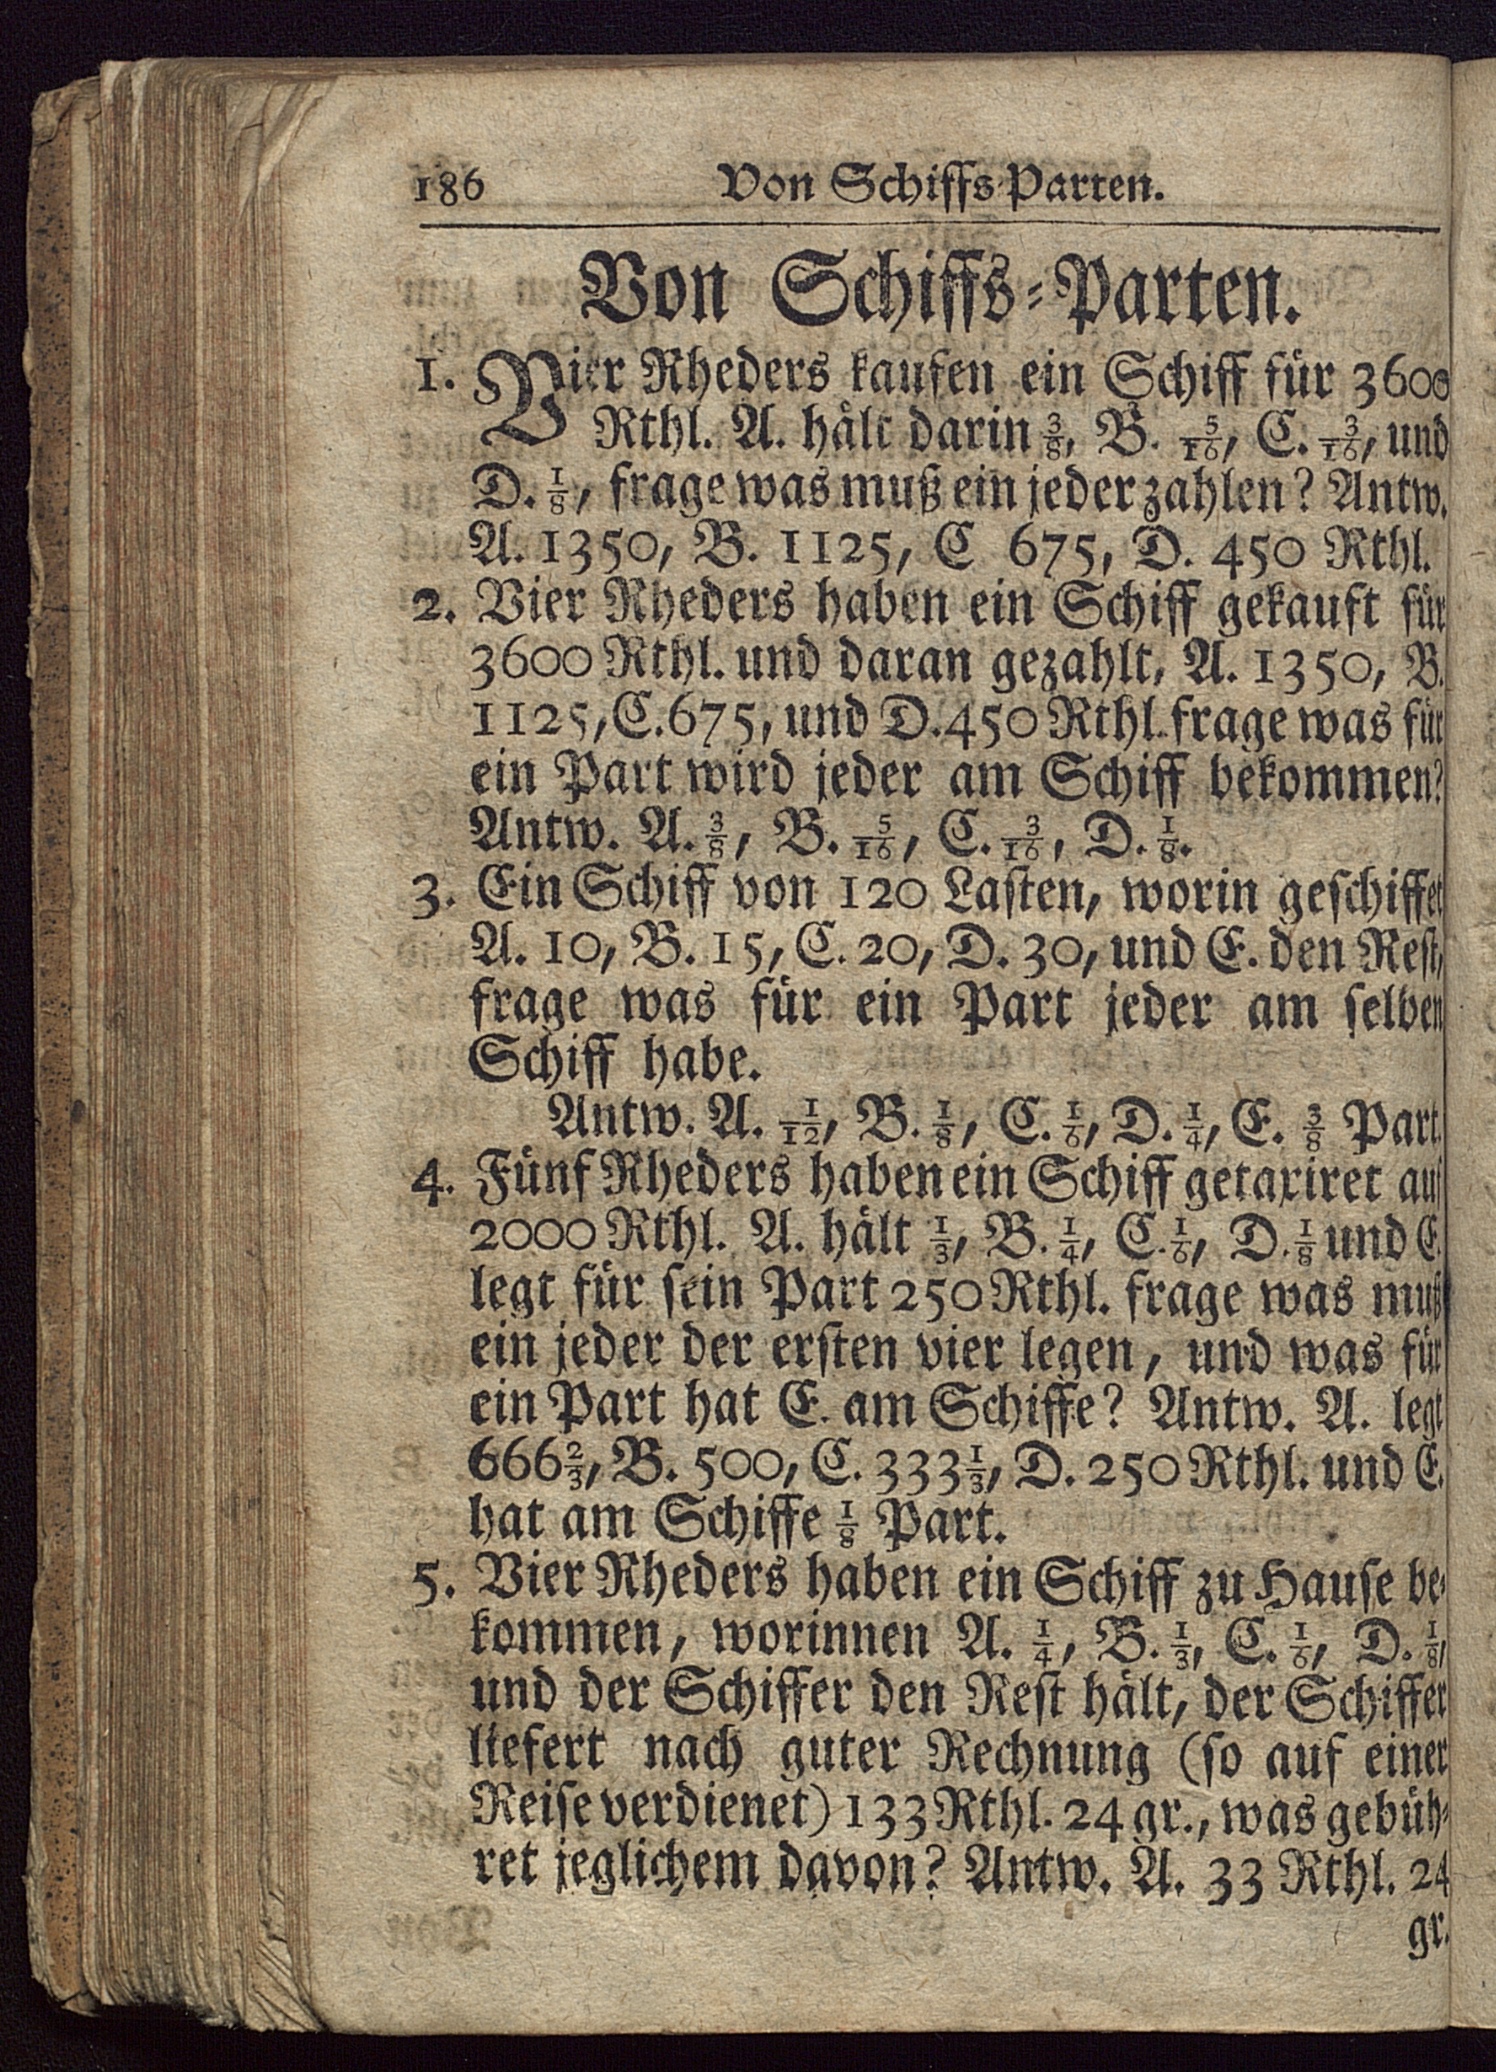 186 Von Schiffs-Parten.
Von Schiffs-Parten.
1. Vier Rheders kaufen ein Schiff für 3600
Rthl. A. hält darin 3/8, B. 5/16, C. 3/16, und
D. 1/8, frage was muß ein jeder zahlen? Antw.
A. 1350, B. 1125, C 675, D. 450 Rthl.
2. Vier Rheders haben ein Schiff gekauft für
3600 Rthl. und daran gezahlt, A. 1350, B.
1125, C. 675, und D. 450 Rthl. frage was für
ein Part wird jeder am Schiff bekommen?
Antw. A. 3/8, B. 5/16, C. 3/16, D. 1/8.
3. Ein Schiff von 120 Lasten, worin geschiffet
A. 10, B. 15, C. 20, D. 30, und E. den Rest,
frage was für ein Part jeder am selben
Schiff habe.
Antw. A. 1/12, B. 1/8, C. 1/6, D. 1/4, E. 3/8 Part.
4. Fünf Rheders haben ein Schiff getaxiret auf
2000 Rthl. A. hält 1/3, B. 1/4, C. 1/6, D. 1/8 und E.
legt für sein Part 250 Rthl. frage was muß
ein jeder der ersten vier legen, und was für
ein Part hat E. am Schiffe? Antw. A. legt
666 2/3, B. 500, C. 333 1/3, D. 250 Rthl. und E.
hat am Schiffe 1/8 Part.
5. Vier Rheders haben ein Schiff zu Hause be-
kommen, worinnen A. 1/4, B. 1/3, C. 1/6, D. 1/8,
und der Schiffer den Rest hält, der Schiffer
liefert nach guter Rechnung (so auf einer
Reise verdienet) 133 Rthl. 24 gr., was gebüh-
ret jeglichem davon? Antw. A. 33 Rthl. 24
gr.